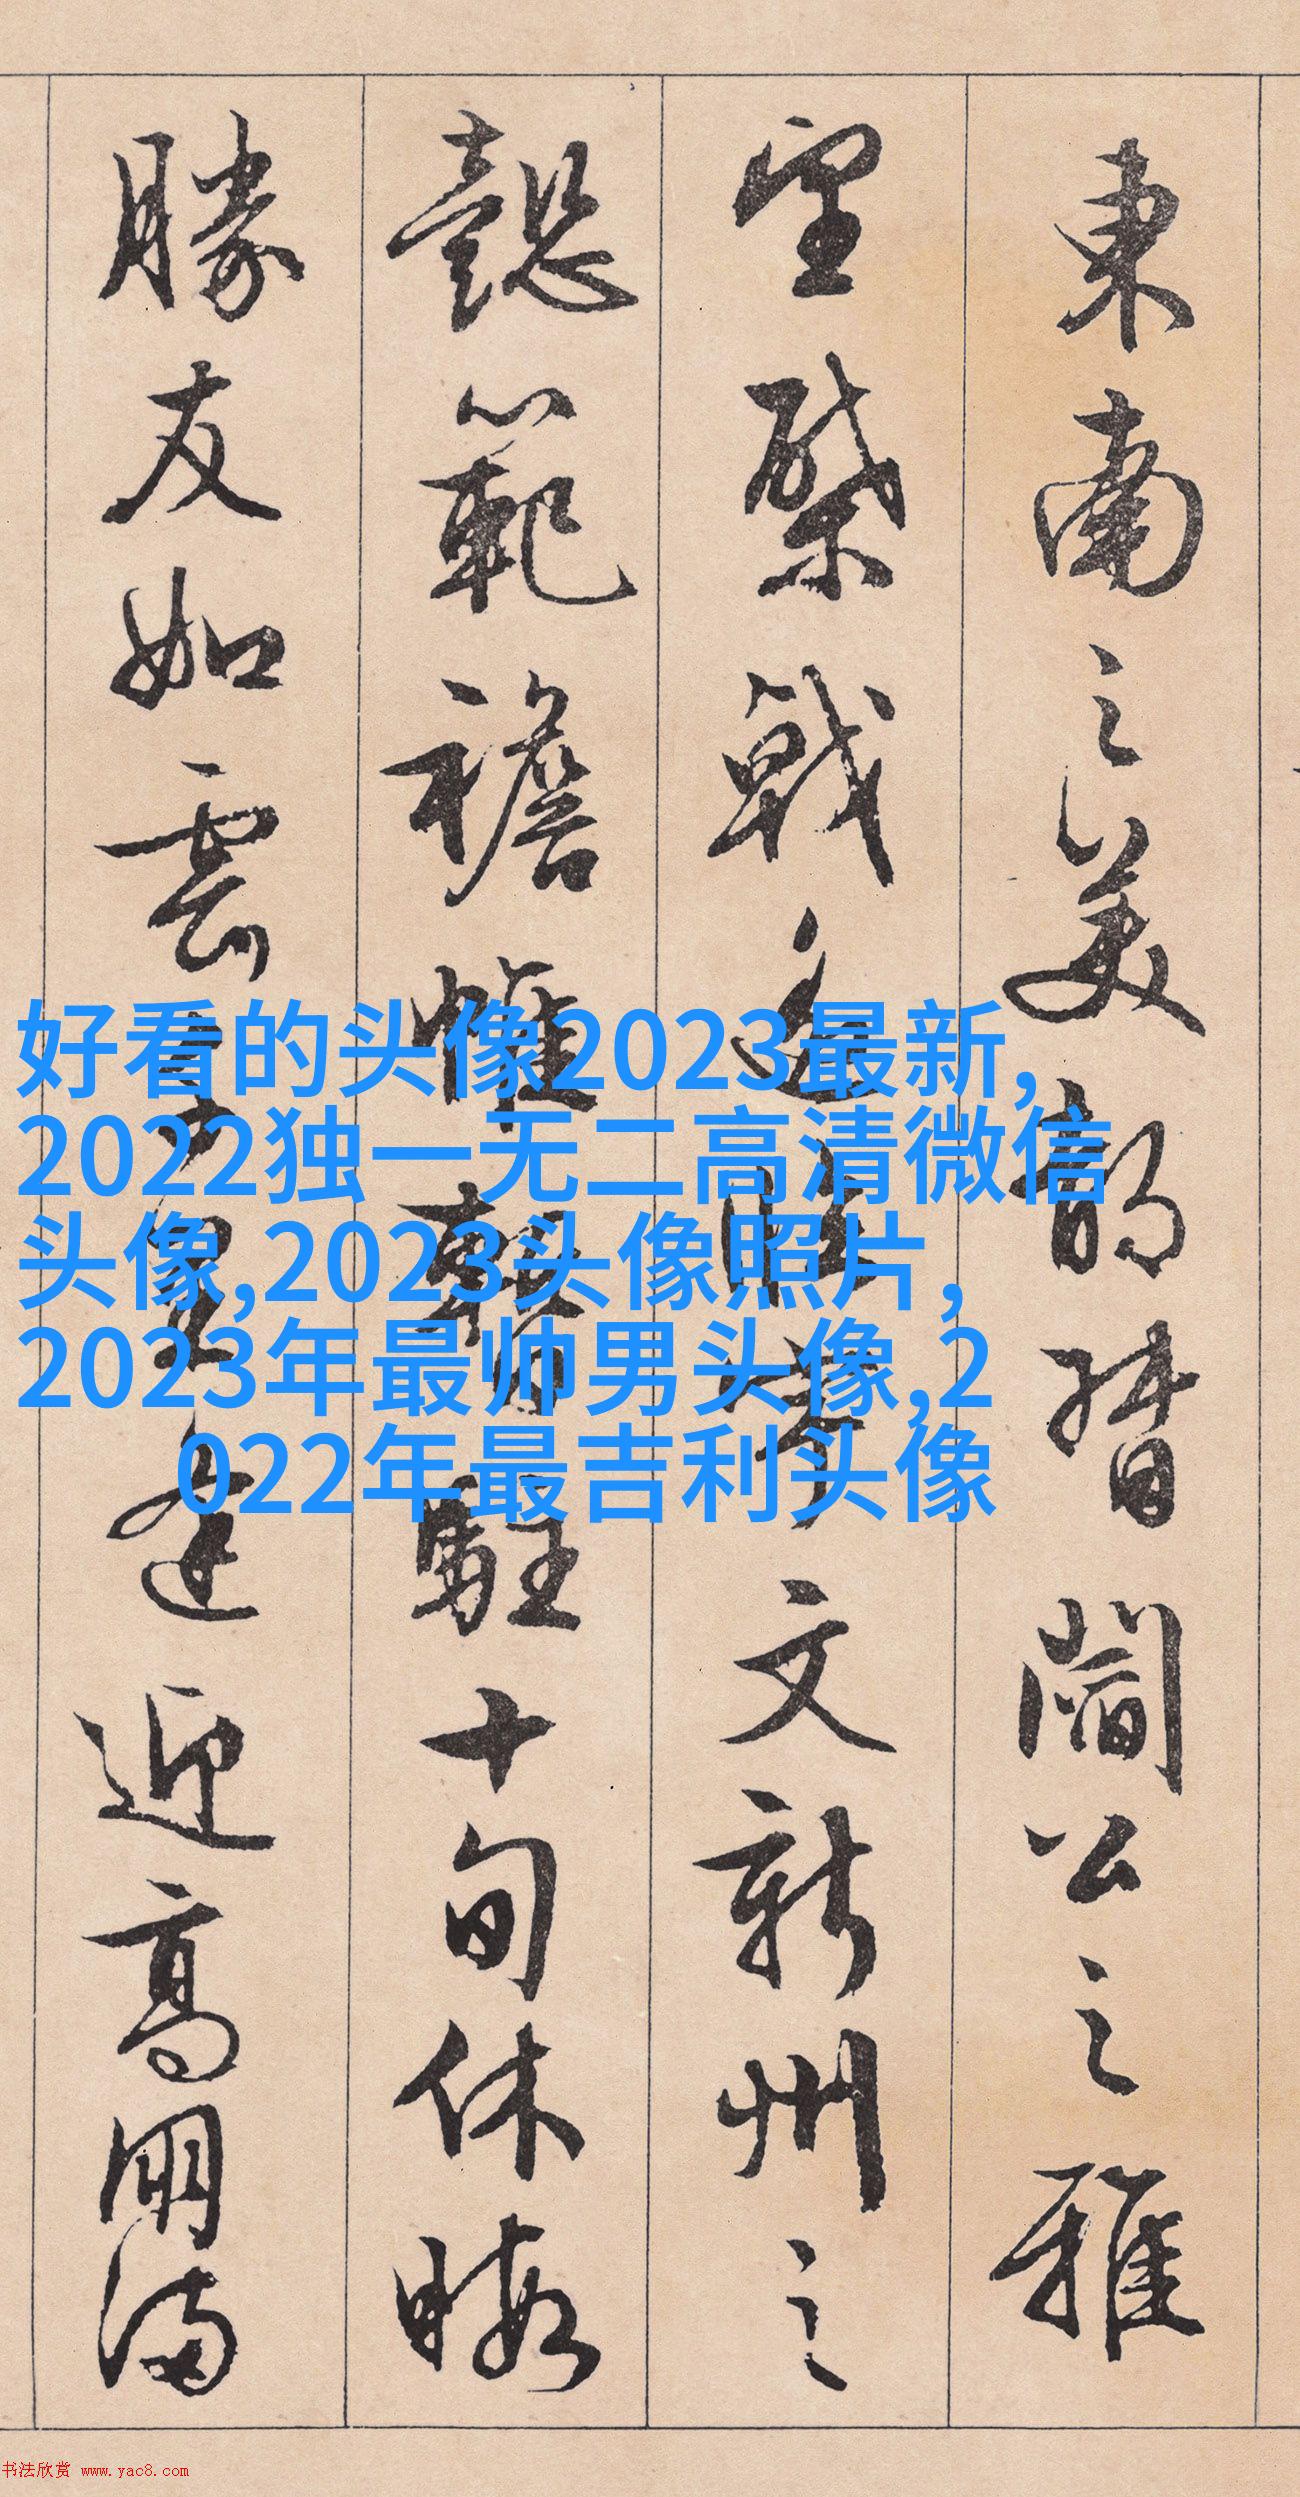 東南之美都督閻公之雅
望棨戟遙臨宇文新州之
懿範襜帷暫駐十旬休暇
勝友如雲千里逢迎高朋滿
好看的头像2023最新,
2022独一无二高清微信
头像,2023头像照片,
2023年最帅男头像,2
022年最吉利头像
书法欣赏 www.yac8.com